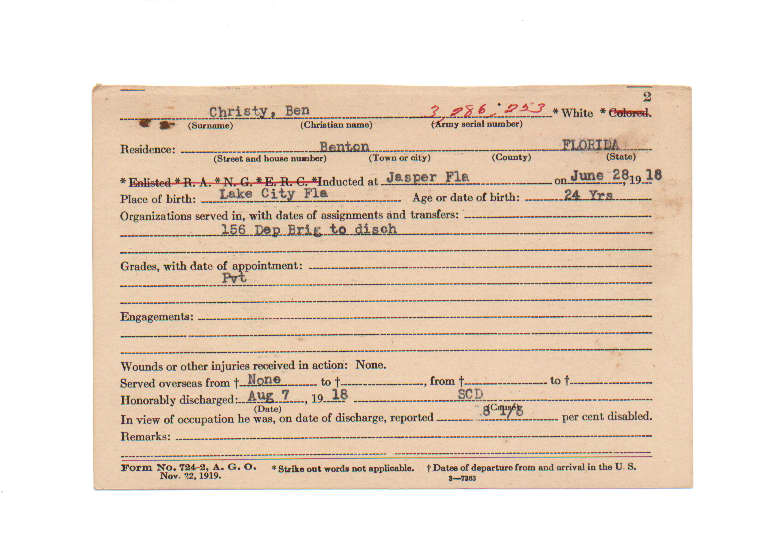 2
Christy, Ben 3,286,253 * White * Colored.
(Surname) (Christian name) (Army serial number)
Residence: Benton FLORIDA
(Street and house number) (Town or city) (County) (State)
* Enlisted * R. A. * N. G. * E. R. C. * Inducted at Jasper Fla on June 28, 1918
Place of birth: Lake City Fla Age or date of birth: 24 Yrs
Organizations served in, with dates of assignments and transfers:
156 Dep Brig to disch
Grades, with date of appointment:
Pvt
Engagements:
Wounds or other injuries received in action: None.
Served overseas from † None to †, from † to †
Honorably discharged: Aug 7, 1918 SCD
(Date) (Cause)
In view of occupation he was, on date of discharge, reported 8 1/3 per cent disabled.
Remarks:
Form No. 724-2, A. G. O. * Strike out words not applicable. † Dates of departure from and arrival in the U. S.
Nov. 22, 1919. 3—7263